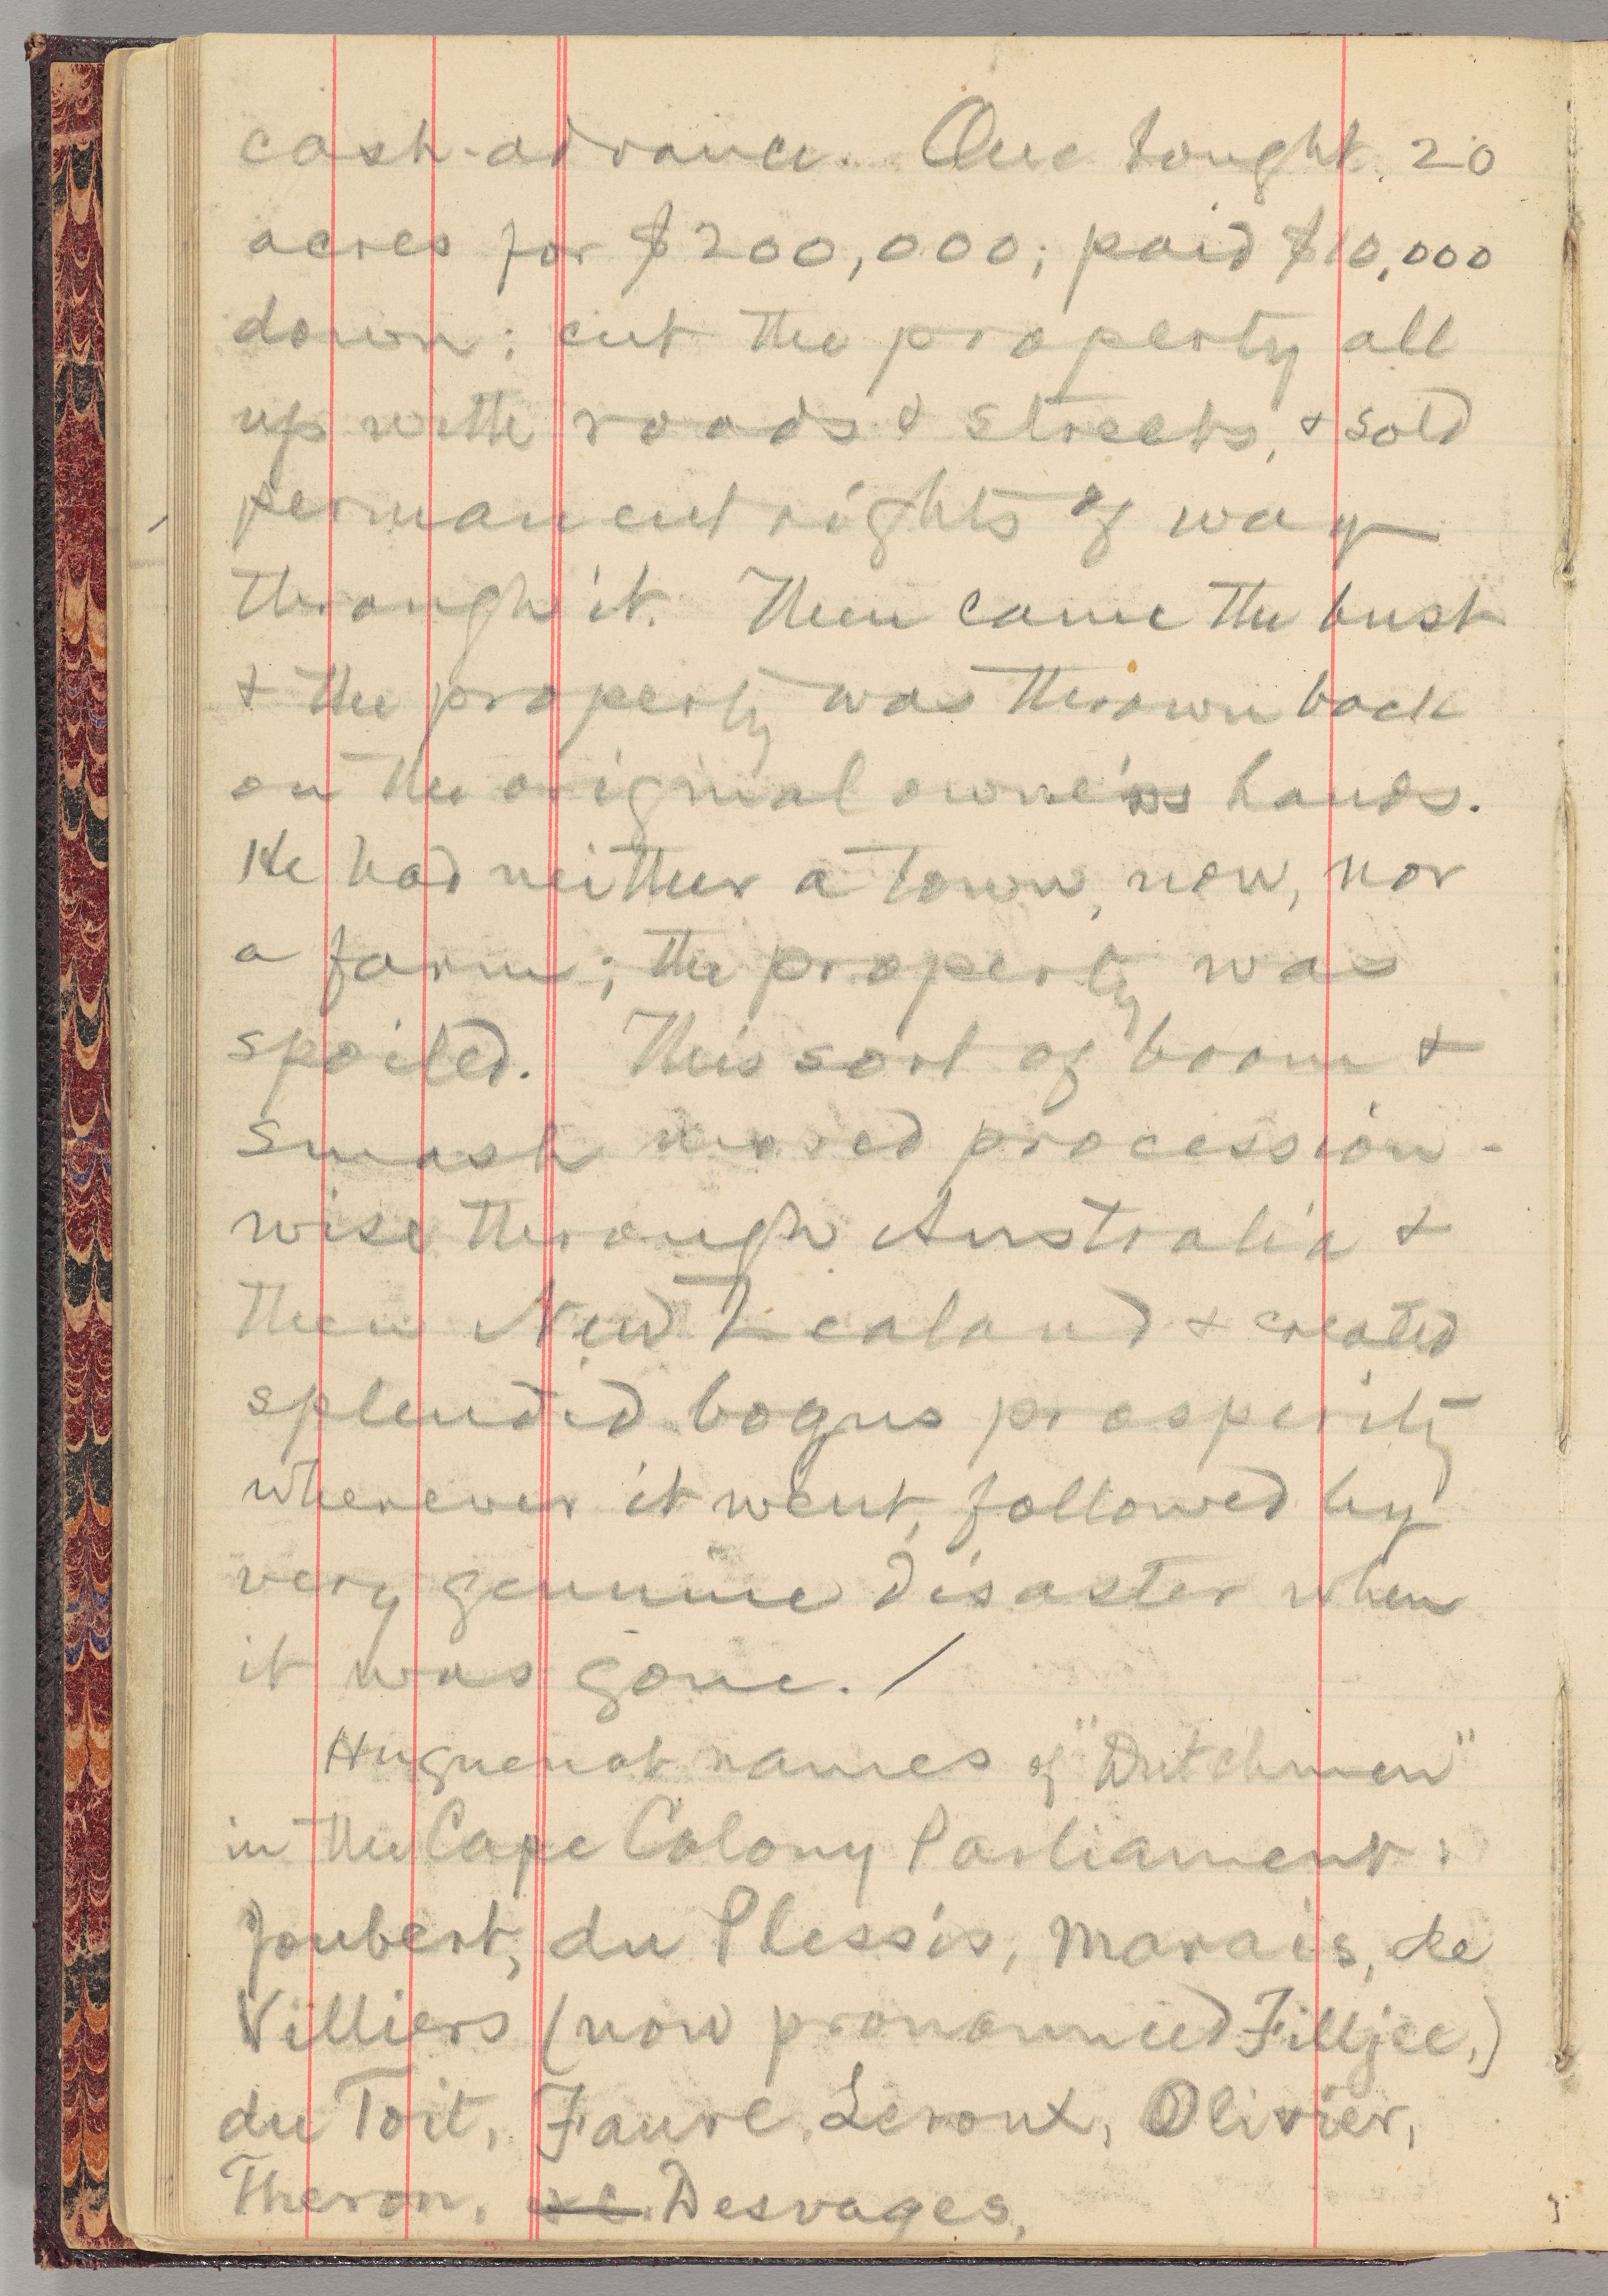 cash-advance. One bought 20
acres for $200,000; paid $10,000
down; cut the property all
up with roads & streets, & sold
permanent rights of way
through it. Then came the bust
& the property was thrown back
on the original owner's hands.
He had neither a town, now, nor
a farm; the property was
spoiled. This sort of boom &
smash moved procession-
wise through Australia &
then New Zealand & created
splendid bogus prosperity
wherever it went, followed by
very genuine disaster when
it was gone. /
Huguenot names of "Dutchmen"
in the Cape Colony Parliament:
Joubert, du Plessis, Marais, de
Villiers (now pronounced Filljee,)
du Toit, Faure, Leroux, Olivier,
Theron, &c. Desvages,